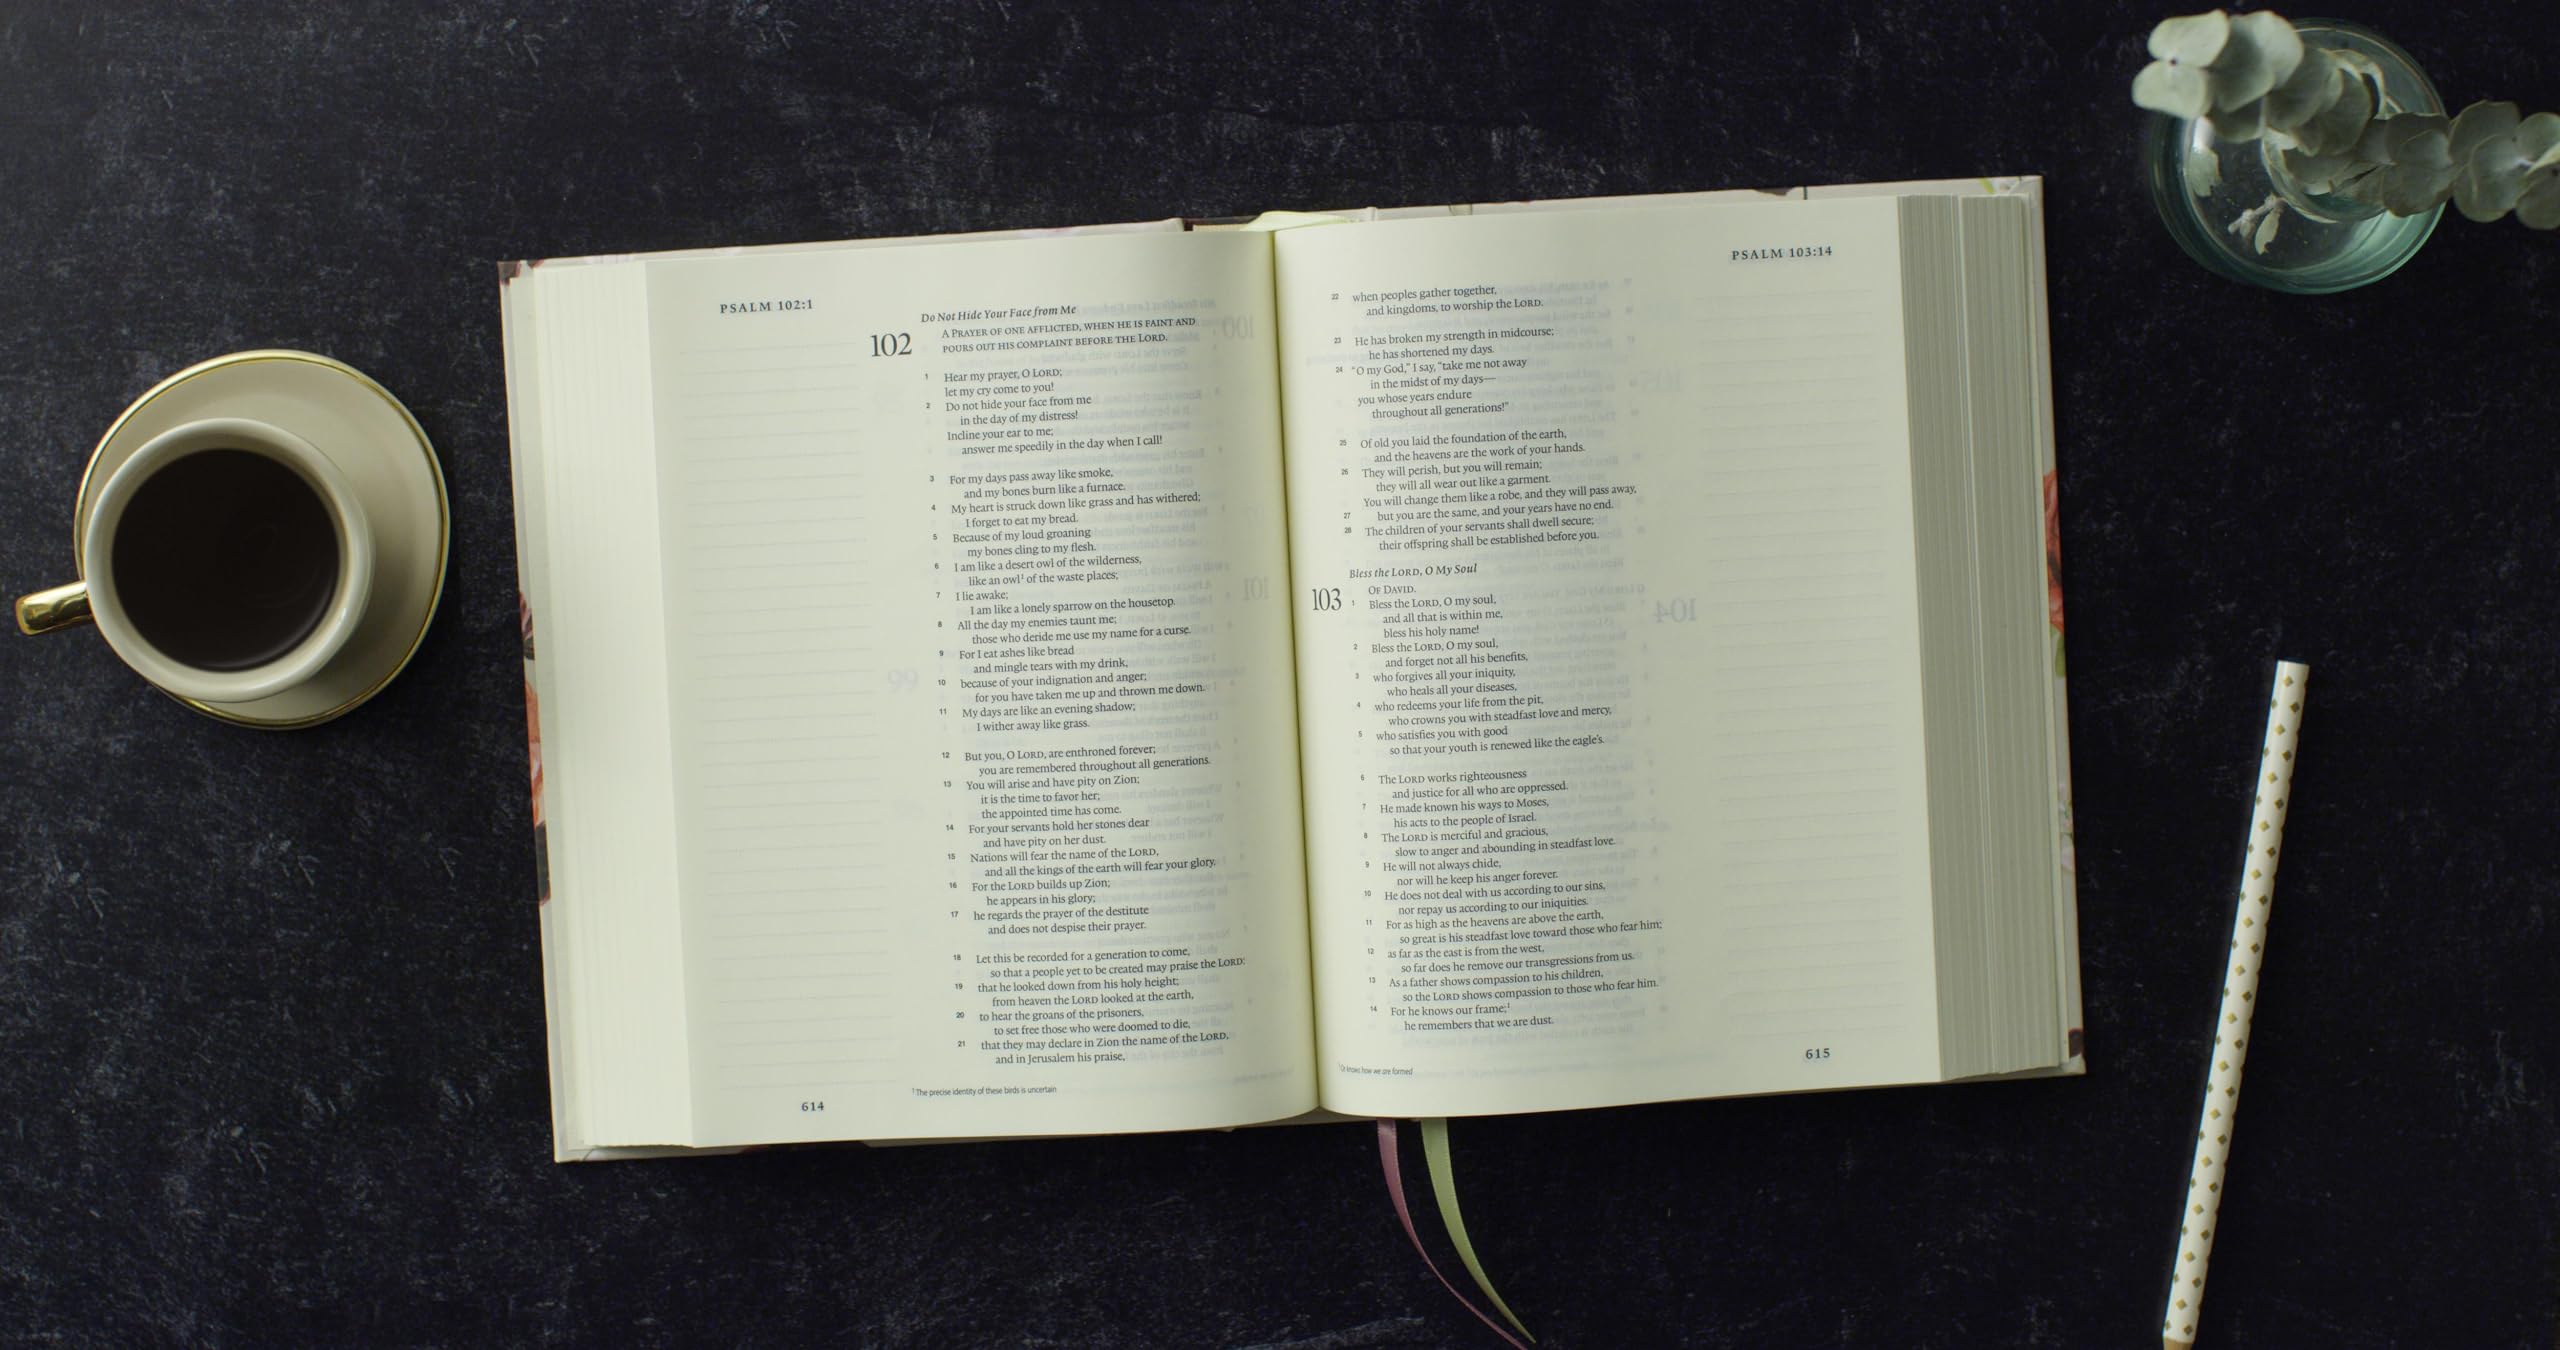 PSALM 102:1
Do Not Hide Your Face from Me
102
A PRAYER OF ONE AFFLICTED, WHEN HE IS FAINT AND
POURS OUT HIS COMPLAINT BEFORE THE LORD.
1 Hear my prayer, O LORD;
let my cry come to you!
2 Do not hide your face from me
in the day of my distress!
Incline your ear to me;
answer me speedily in the day when I call!
3 For my days pass away like smoke,
and my bones burn like a furnace.
4 My heart is struck down like grass and has withered;
I forget to eat my bread.
5 Because of my loud groaning
my bones cling to my flesh.
6 I am like a desert owl of the wilderness,
like an owl¹ of the waste places;
7 I lie awake;
I am like a lonely sparrow on the housetop.
8 All the day my enemies taunt me;
those who deride me use my name for a curse.
9 For I eat ashes like bread
and mingle tears with my drink,
10 because of your indignation and anger;
for you have taken me up and thrown me down.
11 My days are like an evening shadow;
I wither away like grass.
12 But you, O LORD, are enthroned forever;
you are remembered throughout all generations.
13 You will arise and have pity on Zion;
it is the time to favor her;
the appointed time has come.
14 For your servants hold her stones dear
and have pity on her dust.
15 Nations will fear the name of the LORD,
and all the kings of the earth will fear your glory.
16 For the LORD builds up Zion;
he appears in his glory;
17 he regards the prayer of the destitute
and does not despise their prayer.
18 Let this be recorded for a generation to come,
so that a people yet to be created may praise the LORD:
19 that he looked down from his holy height;
from heaven the LORD looked at the earth,
20 to hear the groans of the prisoners,
to set free those who were doomed to die,
21 that they may declare in Zion the name of the LORD,
and in Jerusalem his praise,
¹ The precise identity of these birds is uncertain
614
PSALM 103:14
22 when peoples gather together,
and kingdoms, to worship the LORD.
23 He has broken my strength in midcourse;
he has shortened my days.
24 "O my God," I say, "take me not away
in the midst of my days—
you whose years endure
throughout all generations!"
25 Of old you laid the foundation of the earth,
and the heavens are the work of your hands.
26 They will perish, but you will remain;
they will all wear out like a garment.
You will change them like a robe, and they will pass away,
27 but you are the same, and your years have no end.
28 The children of your servants shall dwell secure;
their offspring shall be established before you.
Bless the LORD, O My Soul
OF DAVID.
103 1 Bless the LORD, O my soul,
and all that is within me,
bless his holy name!
2 Bless the LORD, O my soul,
and forget not all his benefits,
3 who forgives all your iniquity,
who heals all your diseases,
4 who redeems your life from the pit,
who crowns you with steadfast love and mercy,
5 who satisfies you with good
so that your youth is renewed like the eagle's.
6 The LORD works righteousness
and justice for all who are oppressed.
7 He made known his ways to Moses,
his acts to the people of Israel.
8 The LORD is merciful and gracious,
slow to anger and abounding in steadfast love.
9 He will not always chide,
nor will he keep his anger forever.
10 He does not deal with us according to our sins,
nor repay us according to our iniquities.
11 For as high as the heavens are above the earth,
so great is his steadfast love toward those who fear him;
12 as far as the east is from the west,
so far does he remove our transgressions from us.
13 As a father shows compassion to his children,
so the LORD shows compassion to those who fear him.
14 For he knows our frame;¹
he remembers that we are dust.
¹ Or knows how we are formed
615